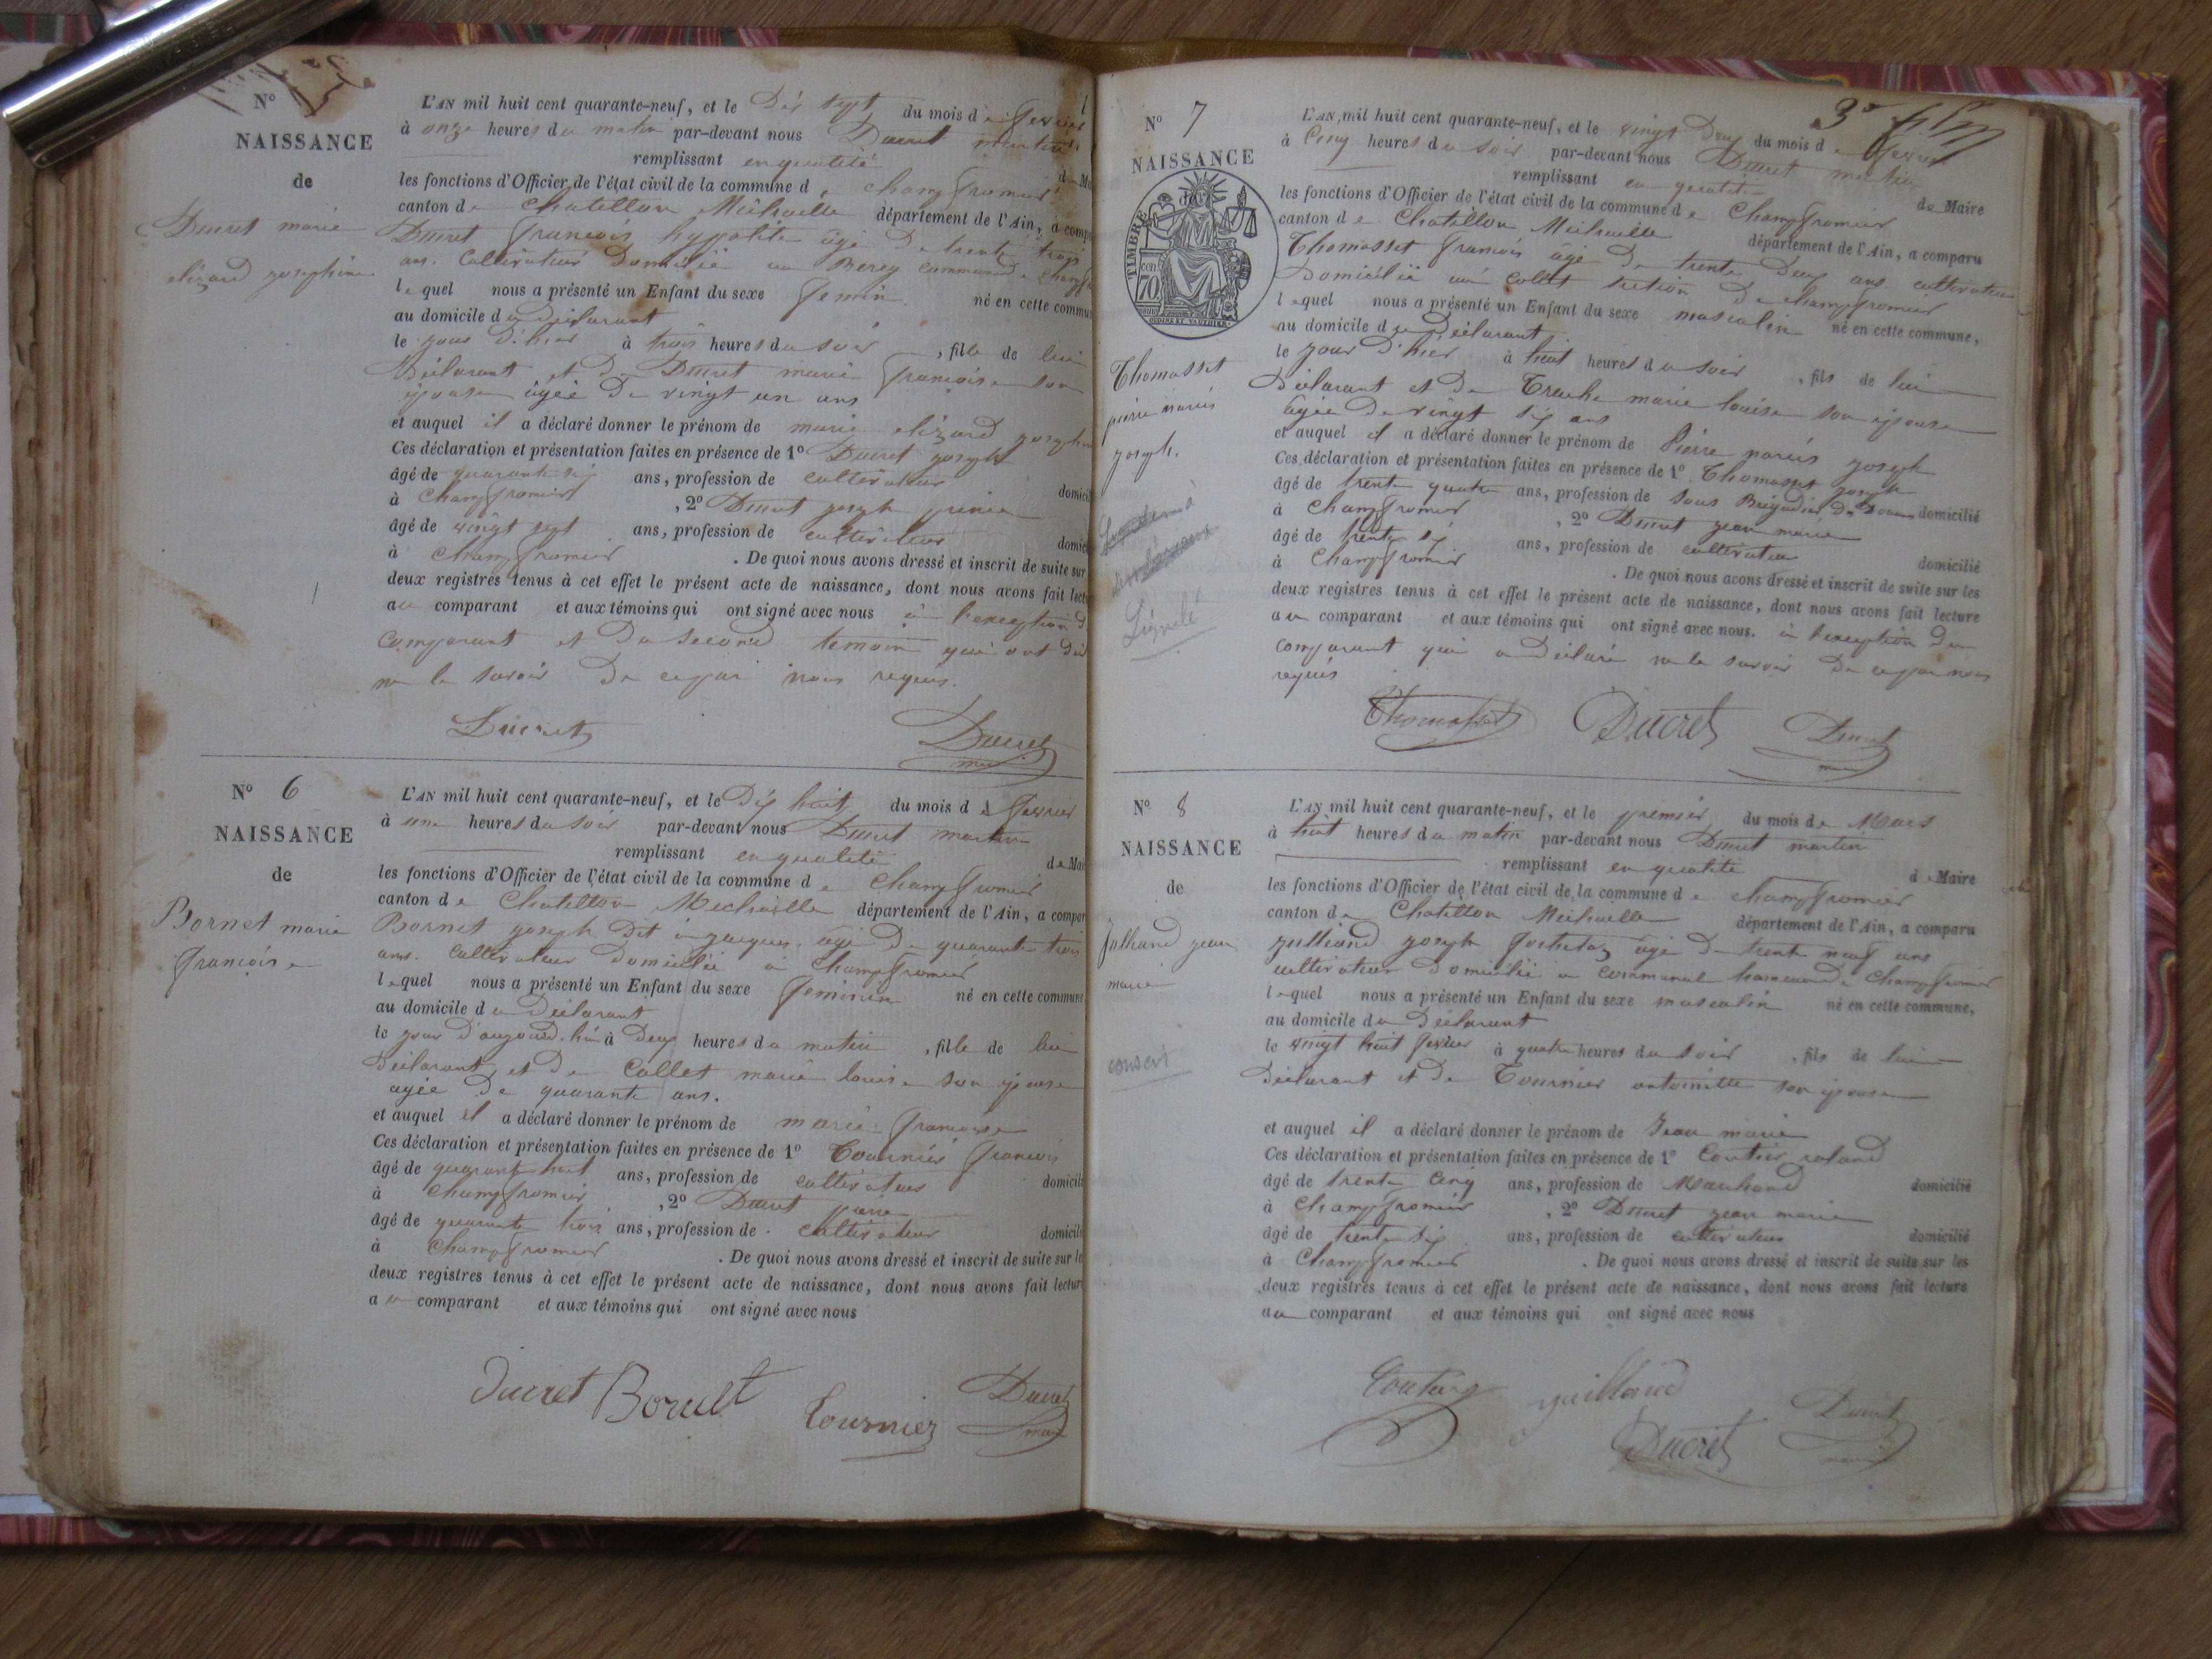 N°
NAISSANCE
de
Ducret marie
elizard josephine
L'AN mil huit cent quarante-neuf, et le dix sept du mois de fevrier
à onze heures du matin par-devant nous Ducret martin
remplissant en qualité de
les fonctions d'Officier de l'état civil de la commune de champfromier
canton de Chatillon Michaille département de l'Ain, a comp
Ducret francois hypolite âgé de trente trois
ans. Cultivateur domicilié au Berey commune de champf
lequel nous a présenté un Enfant du sexe femin né en cette commu
au domicile du déclarant
le jour d'hier à trois heures du soir, fille de lui
déclarant et de Ducret marie françoise son
épouse âgée de vingt un ans
et auquel il a déclaré donner le prénom de marie elizard joseph
Ces déclaration et présentation faites en présence de 1° Ducret joseph
âgé de quarante six ans, profession de cultivateur domici
à Champfromier, 2° Ducret joseph
âgé de vingt sept ans, profession de cultivateur domici
à Champfromier. De quoi nous avons dressé et inscrit de suite sur
deux registres tenus à cet effet le présent acte de naissance, dont nous avons fait lectu
au comparant et aux témoins qui ont signé avec nous à l'exception d
comparant et du second temoin qui ont dit
ne le savoir de ce par nous requis.
Ducret Ducret
maire
N° 6
NAISSANCE
de
Bornet marie
françoise
L'AN mil huit cent quarante-neuf, et le dix huit du mois de fevrier
à une heures du soir par-devant nous Ducret martin
remplissant en qualité de Mai
les fonctions d'Officier de l'état civil de la commune de Champfromier
canton de Chatillon Michaille département de l'Ain, a compar
Bornet joseph dit à jacques âgé de quarante trois
ans. Cultivateur domicilié à Champfromier
lequel nous a présenté un Enfant du sexe feminin né en cette commune
au domicile du déclarant
le jour d'aujourd'hui à deux heures du matin, fille de lui
déclarant et de Collet marie louise son épouse
agée de quarante ans.
et auquel il a déclaré donner le prénom de marie francoise
Ces déclaration et présentation faites en présence de 1° Tournier francois
âgé de quarante huit ans, profession de cultivateur domicili
à champfromier, 2° Ducret pierre
âgé de quarante trois ans, profession de cultivateur domicili
à Champfromier. De quoi nous avons dressé et inscrit de suite sur le
deux registres tenus à cet effet le présent acte de naissance, dont nous avons fait lectur
au comparant et aux témoins qui ont signé avec nous
Ducret Bornet Tournier Ducret
maire
N° 7
NAISSANCE
TIMBRE
70
Thomasset
pierre marius
joseph.
Signalé
L'AN mil huit cent quarante-neuf, et le vingt deux du mois de fevrier
à Cinq heures du soir par-devant nous Ducret martin
remplissant en qualité de Maire
les fonctions d'Officier de l'état civil de la commune de Champfromier
canton de Chatillon Michaille département de l'Ain, a comparu
Thomasset francois âgé de trente deux ans cultivateur
domicilié au collet section de champfromier
lequel nous a présenté un Enfant du sexe masculin né en cette commune,
au domicile du déclarant
le jour d'hier à huit heures du soir, fils de lui
déclarant et de Truche marie louise son épouse
âgée de vingt six ans
et auquel il a déclaré donner le prénom de Pierre marius joseph
Ces déclaration et présentation faites en présence de 1° Thomasset joseph
âgé de trente quatre ans, profession de sous Brigadier de Douane domicilié
à Champfromier, 2° Ducret jean marie
âgé de trente six ans, profession de cultivateur domicilié
à Champfromier. De quoi nous avons dressé et inscrit de suite sur les
deux registres tenus à cet effet le présent acte de naissance, dont nous avons fait lecture
au comparant et aux témoins qui ont signé avec nous. à l'exception du
comparant qui a déclaré ne le savoir de ce par nous
requis
Thomasset Ducret Ducret
maire
N° 8
NAISSANCE
de
Julliand jean
marie
conscri
L'AN mil huit cent quarante-neuf, et le premier du mois de Mars
à huit heures du matin par-devant nous Ducret martin
remplissant en qualité de Maire
les fonctions d'Officier de l'état civil de la commune de champfromier
canton de Chatillon Michaille département de l'Ain, a comparu
julliand joseph âgé de trente neuf ans
cultivateur domicilié à communal hameau de Champfromier
lequel nous a présenté un Enfant du sexe masculin né en cette commune,
au domicile du déclarant
le vingt huit fevrier à quatre heures du soir, fils de lui
déclarant et de Tournier antoinette son épouse
et auquel il a déclaré donner le prénom de Jean marie
Ces déclaration et présentation faites en présence de 1° Coutier roland
âgé de trente cinq ans, profession de Marchand domicilié
à Champfromier, 2° Ducret jean marie
âgé de trente six ans, profession de cultivateur domicilié
à Champfromier. De quoi nous avons dressé et inscrit de suite sur les
deux registres tenus à cet effet le présent acte de naissance, dont nous avons fait lecture
au comparant et aux témoins qui ont signé avec nous
Coutier juilland Ducret
Ducret maire